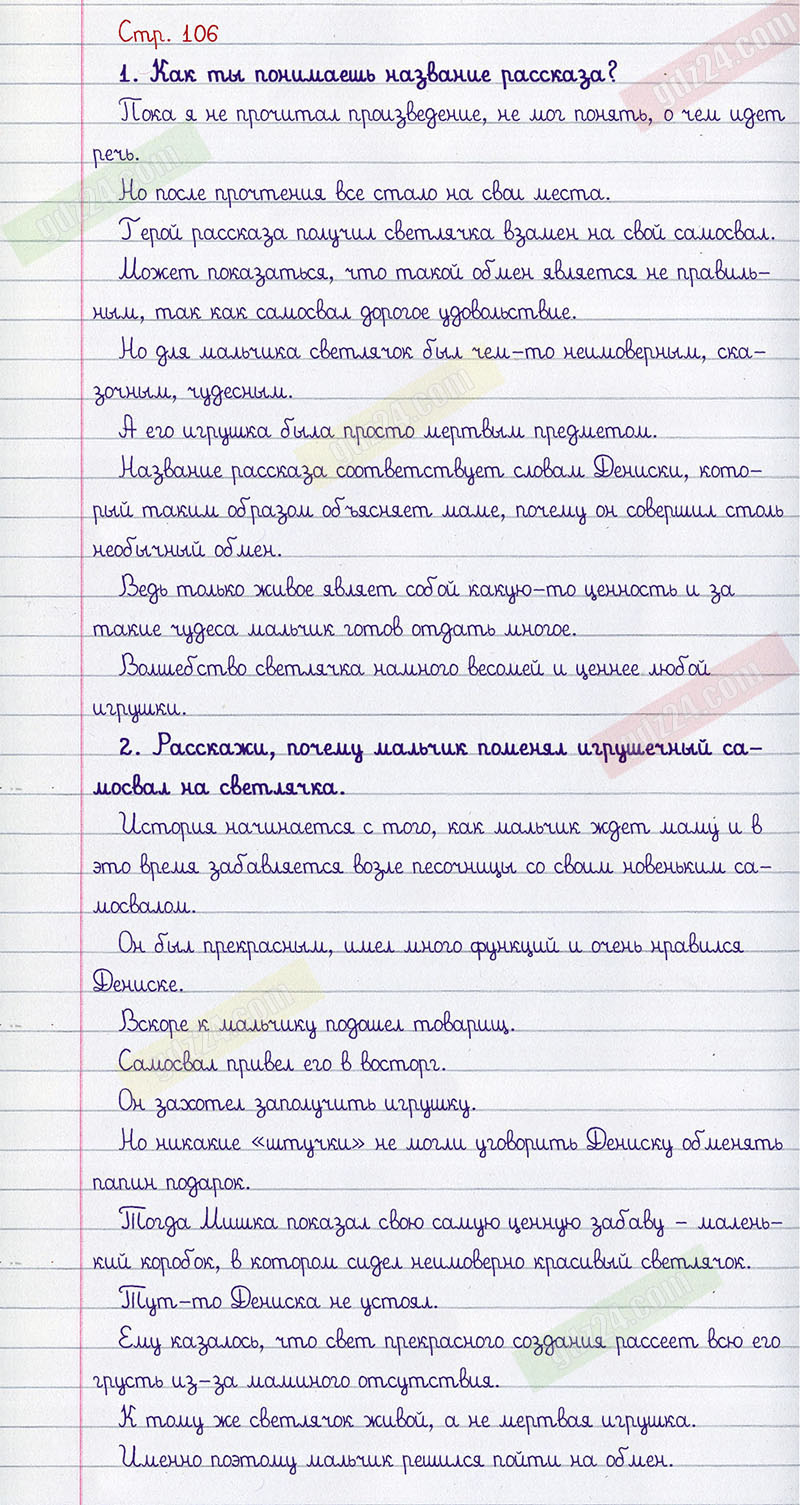 Стр. 106
1. Как ты понимаешь название рассказа?
Пока я не прочитал произведение, не мог понять, о чем идет
речь.
Но после прочтения все стало на свои места.
Герой рассказа получил светлячка взамен на свой самосвал.
Может показаться, что такой обмен является не правиль-
ным, так как самосвал дорогое удовольствие.
Но для мальчика светлячок был чем-то неимоверным, ска-
зочным, чудесным.
А его игрушка была просто мертвым предметом.
Название рассказа соответствует словам Дениски, кото-
рый таким образом объясняет маме, почему он совершил столь
необычный обмен.
Ведь только живое являет собой какую-то ценность и за
такие чудеса мальчик готов отдать многое.
Волшебство светлячка намного весомей и ценнее любой
игрушки.
2. Расскажи, почему мальчик поменял игрушечный са-
мосвал на светлячка.
История начинается с того, как мальчик ждет маму и в
это время забавляется возле песочницы со своим новеньким са-
мосвалом.
Он был прекрасным, имел много функций и очень нравился
Дениске.
Вскоре к мальчику подошел товарищ.
Самосвал привел его в восторг.
Он захотел заполучить игрушку.
Но никакие «штучки» не могли уговорить Дениску обменять
папин подарок.
Тогда Мишка показал свою самую ценную забаву – малень-
кий коробок, в котором сидел неимоверно красивый светлячок.
Тут-то Дениска не устоял.
Ему казалось, что свет прекрасного создания рассеет всю его
грусть из-за маминого отсутствия.
К тому же светлячок живой, а не мертвая игрушка.
Именно поэтому мальчик решился пойти на обмен.
gdz24.com
gdz24.com
gdz24.com
gdz24.com
gdz24.com
gdz24.com